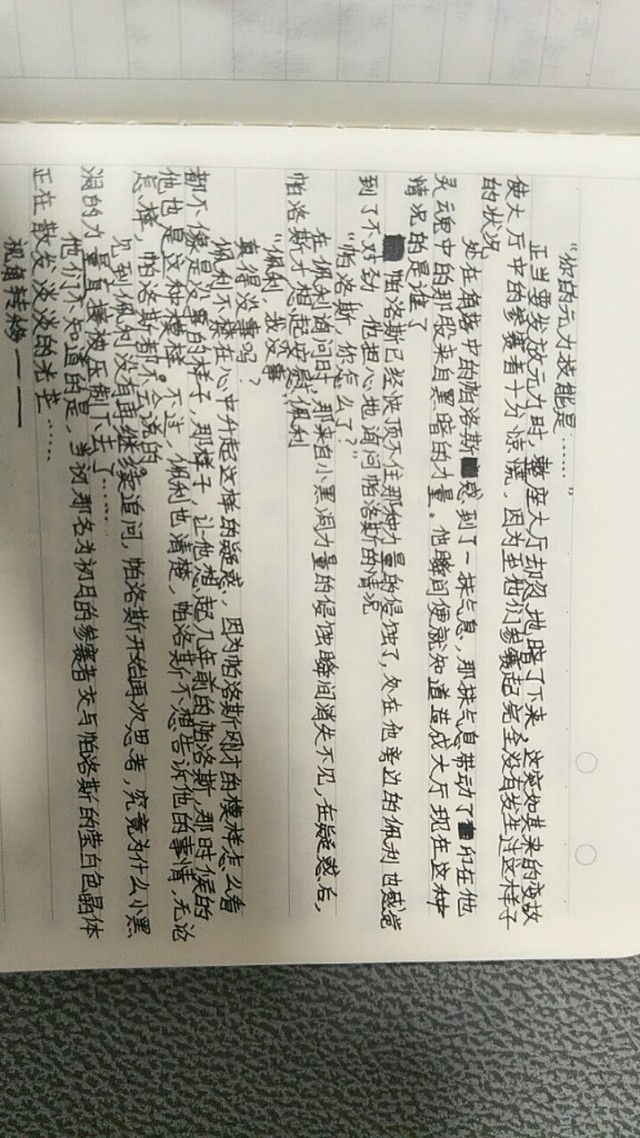 “你的元力技能是……”
正当要发放元力时，整座大厅却忽地暗了下来，这突如其来的变故
使大厅中的参赛者十分惊慌，因为至他们参赛起完全没有发生过这样子
的状况
处在角落中的帕洛斯感到了一抹气息，那抹气息带动了印在他
灵魂中的那段来自黑暗的力量。他瞬间便就知道造成大厅现在这种
情况的是谁了
帕洛斯已经快顶不住那种力量的侵蚀了，处在他旁边的佩利也感觉
到了不对劲，他担心地询问帕洛斯的情况
“帕洛斯，你怎么了？”
在佩利询问时，那来自小黑洞力量的侵蚀瞬间消失不见，在疑惑后，
帕洛斯才想起安慰佩利
“佩利，我没事”
真得没事吗？
佩利不禁在心中升起这样的疑惑，因为帕洛斯刚才的模样怎么看
都不像是没事的样子，那样子，让他想起几年前的帕洛斯，那时候的
他也是这种模样，不过，佩利也清楚，帕洛斯不想告诉他的事情，无论
怎样，帕洛斯都不会说的
见到佩利没有再继续追问，帕洛斯开始再次思考，究竟为什么小黑
洞的力量直接被压制下去了……
他们不知道的是，当初那名为初月的参赛者交与帕洛斯的莹白色晶体
正在散发淡淡的光芒……
视角转移——